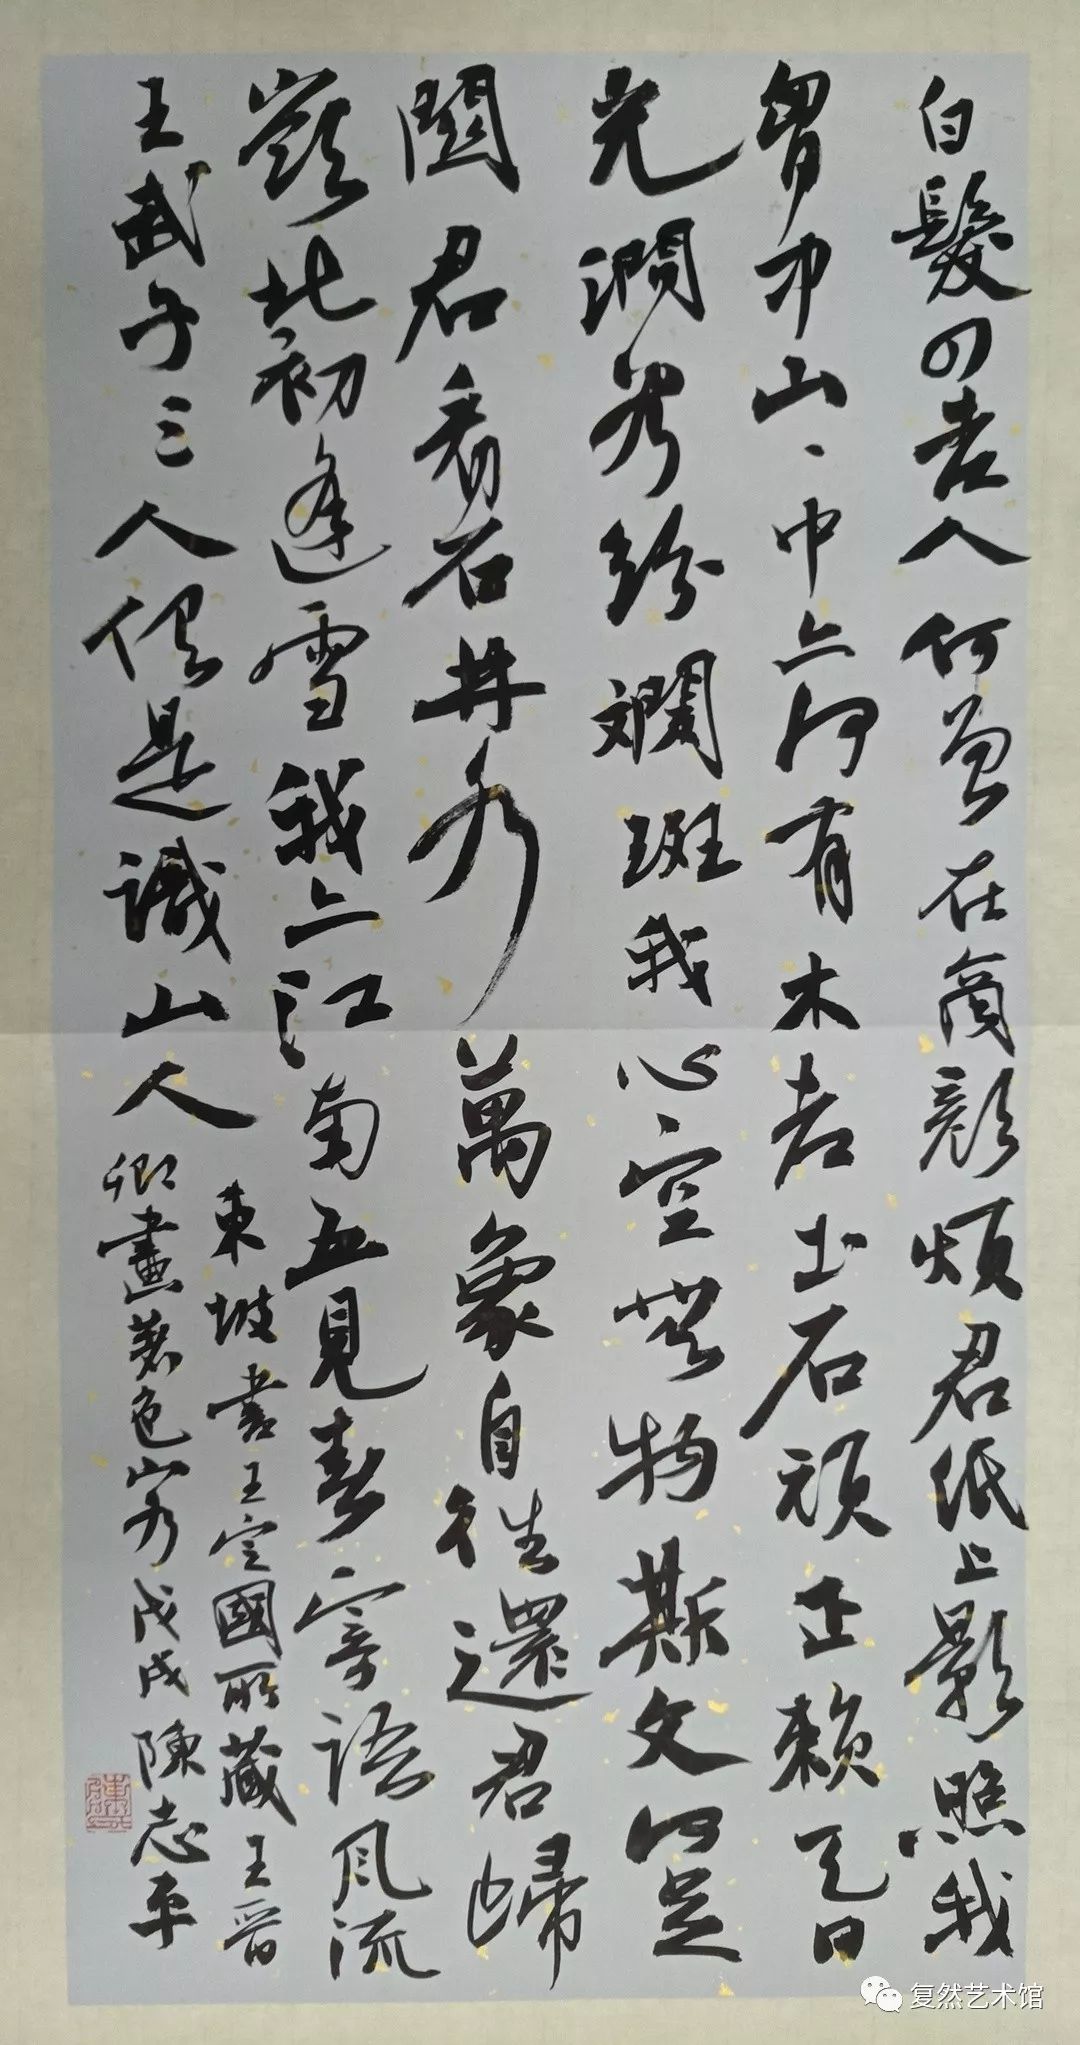 白髮四老人何曾在商顏煩君紙上影照我
胷中山丶中亦何有木老土石頑正賴天日
光澗谷紛斕斑我心空無物斯文何足
關君看古井水萬象自往還君歸
嶺北初逢雪我亦江南五見春寄語風流
王武子三人俱是識山人
東坡書王定國所藏王晉
卿畫著色山水戊戌陳志平
复然艺术馆